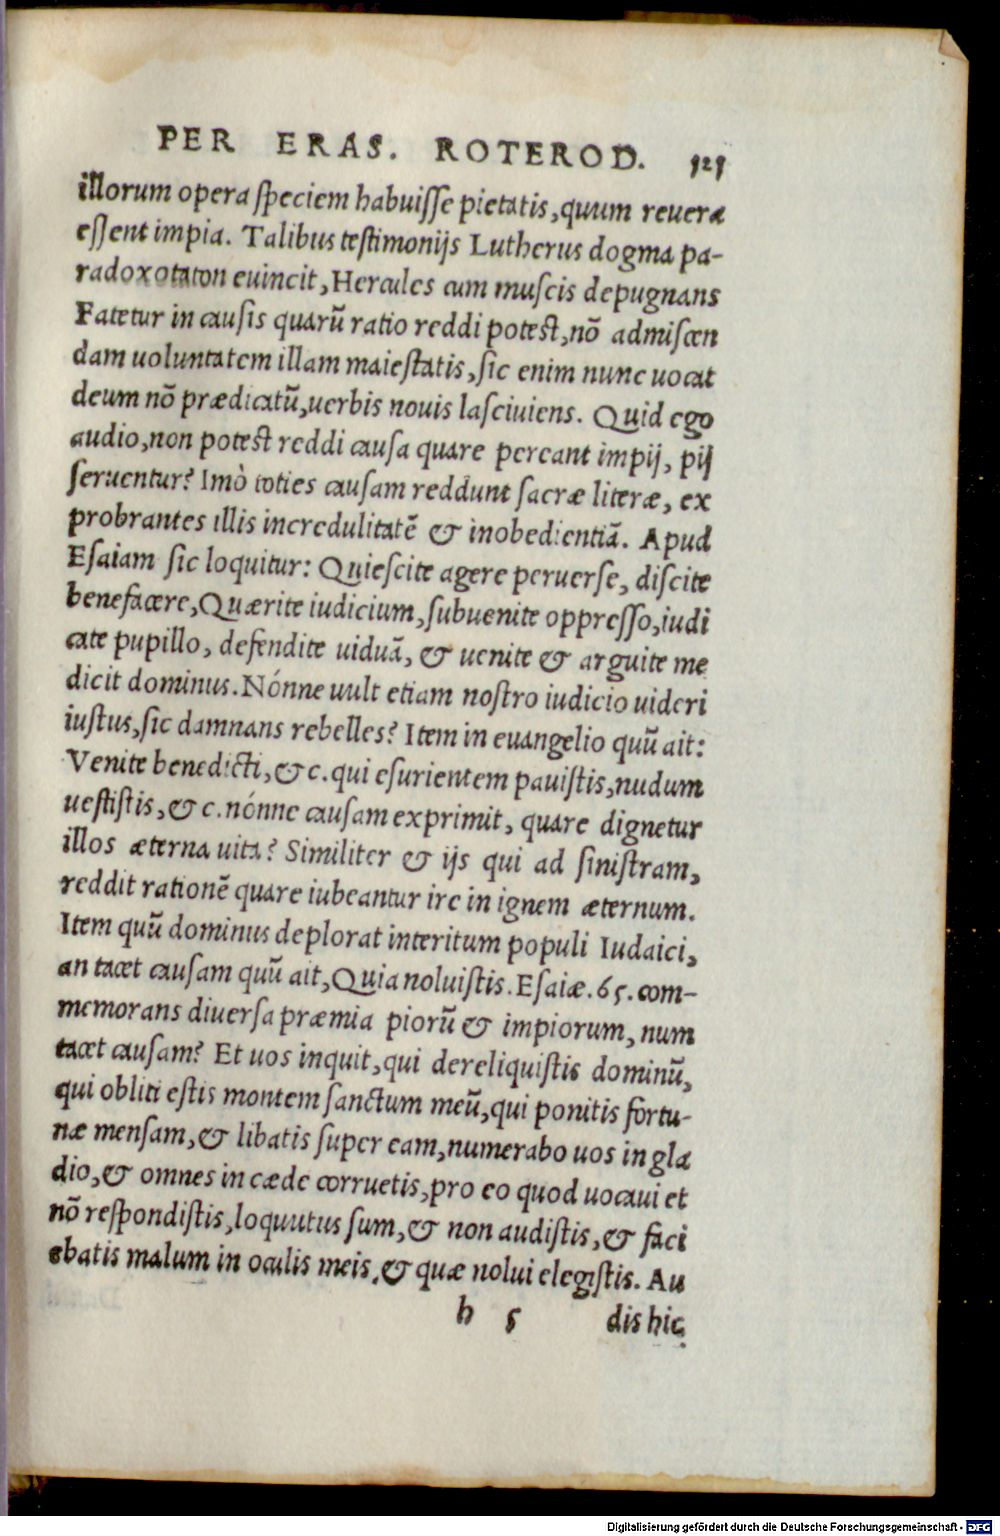 PER ERAS. ROTEROD. 121
illorum opera speciem habuisse pietatis, quum reuera
essent impia. Talibus testimonijs Lutherus dogma pa-
radoxotaton euincit, Hercules cum muscis depugnans
Fatetur in causis quarũ ratio reddi potest, nõ admiscen
dam uoluntatem illam maiestatis, sic enim nunc uocat
deum nõ prædicatũ, uerbis nouis lasciuiens. Quid ego
audio, non potest reddi causa quare pereant impij, pij
seruentur? Imò toties causam reddunt sacræ literæ, ex
probrantes illis incredulitatẽ & inobedientiã. Apud
Esaiam sic loquitur: Quiescite agere peruerse, discite
benefacere, Quærite iudicium, subuenite oppresso, iudi
cate pupillo, defendite uiduã, & uenite & arguite me
dicit dominus. Nónne uult etiam nostro iudicio uideri
iustus, sic damnans rebelles? Item in euangelio quũ ait:
Venite benedicti, & c. qui esurientem pauistis, nudum
uestistis, & c. nónne causam exprimit, quare dignetur
illos æterna uita? Similiter & ijs qui ad sinistram,
reddit rationẽ quare iubeantur ire in ignem æternum.
Item quũ dominus deplorat interitum populi Iudaici,
an tacet causam quũ ait, Quia noluistis. Esaiæ. 65. com-
memorans diuersa præmia piorũ & impiorum, num
tacet causam? Et uos inquit, qui dereliquistis dominũ,
qui obliti estis montem sanctum meũ, qui ponitis fortu-
næ mensam, & libatis super eam, numerabo uos in gla
dio, & omnes in cæde corruetis, pro eo quod uocaui et
nõ respondistis, loquutus sum, & non audistis, & faci
ebatis malum in oculis meis, & quæ nolui elegistis. Au
h 5 dis hic
Digitalisierung gefördert durch die Deutsche Forschungsgemeinschaft - DFG